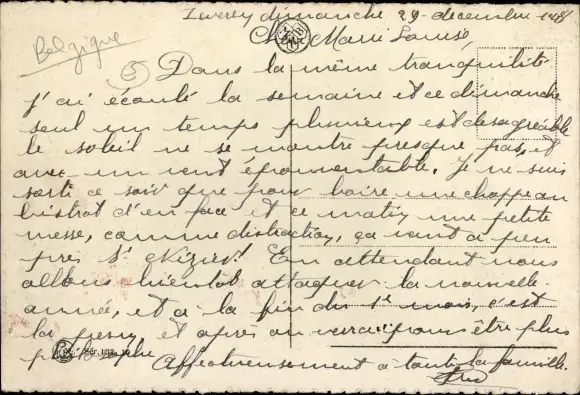 dimanche 29 decembre
Belgique
Ch Marie Louise
5) Dans la même tranquilité
j'ai écoulé la semaine et ce dimanche
seul un temps pluvieux est desagréable
le soleil ne se montre presque pas, et
avec un vent épouventable. Je ne suis
sorti ce soir que pour boire une chope au
bistrot d'en face et ce matin une petite
messe, comme distraction, ça vaut à peu
près St Nizier! En attendant nous
allons bientôt attaquer la nouvelle
année, et à la fin du 1r mois, c'est
la et après on verra pour être plus
Affectueusement à toute la famille.